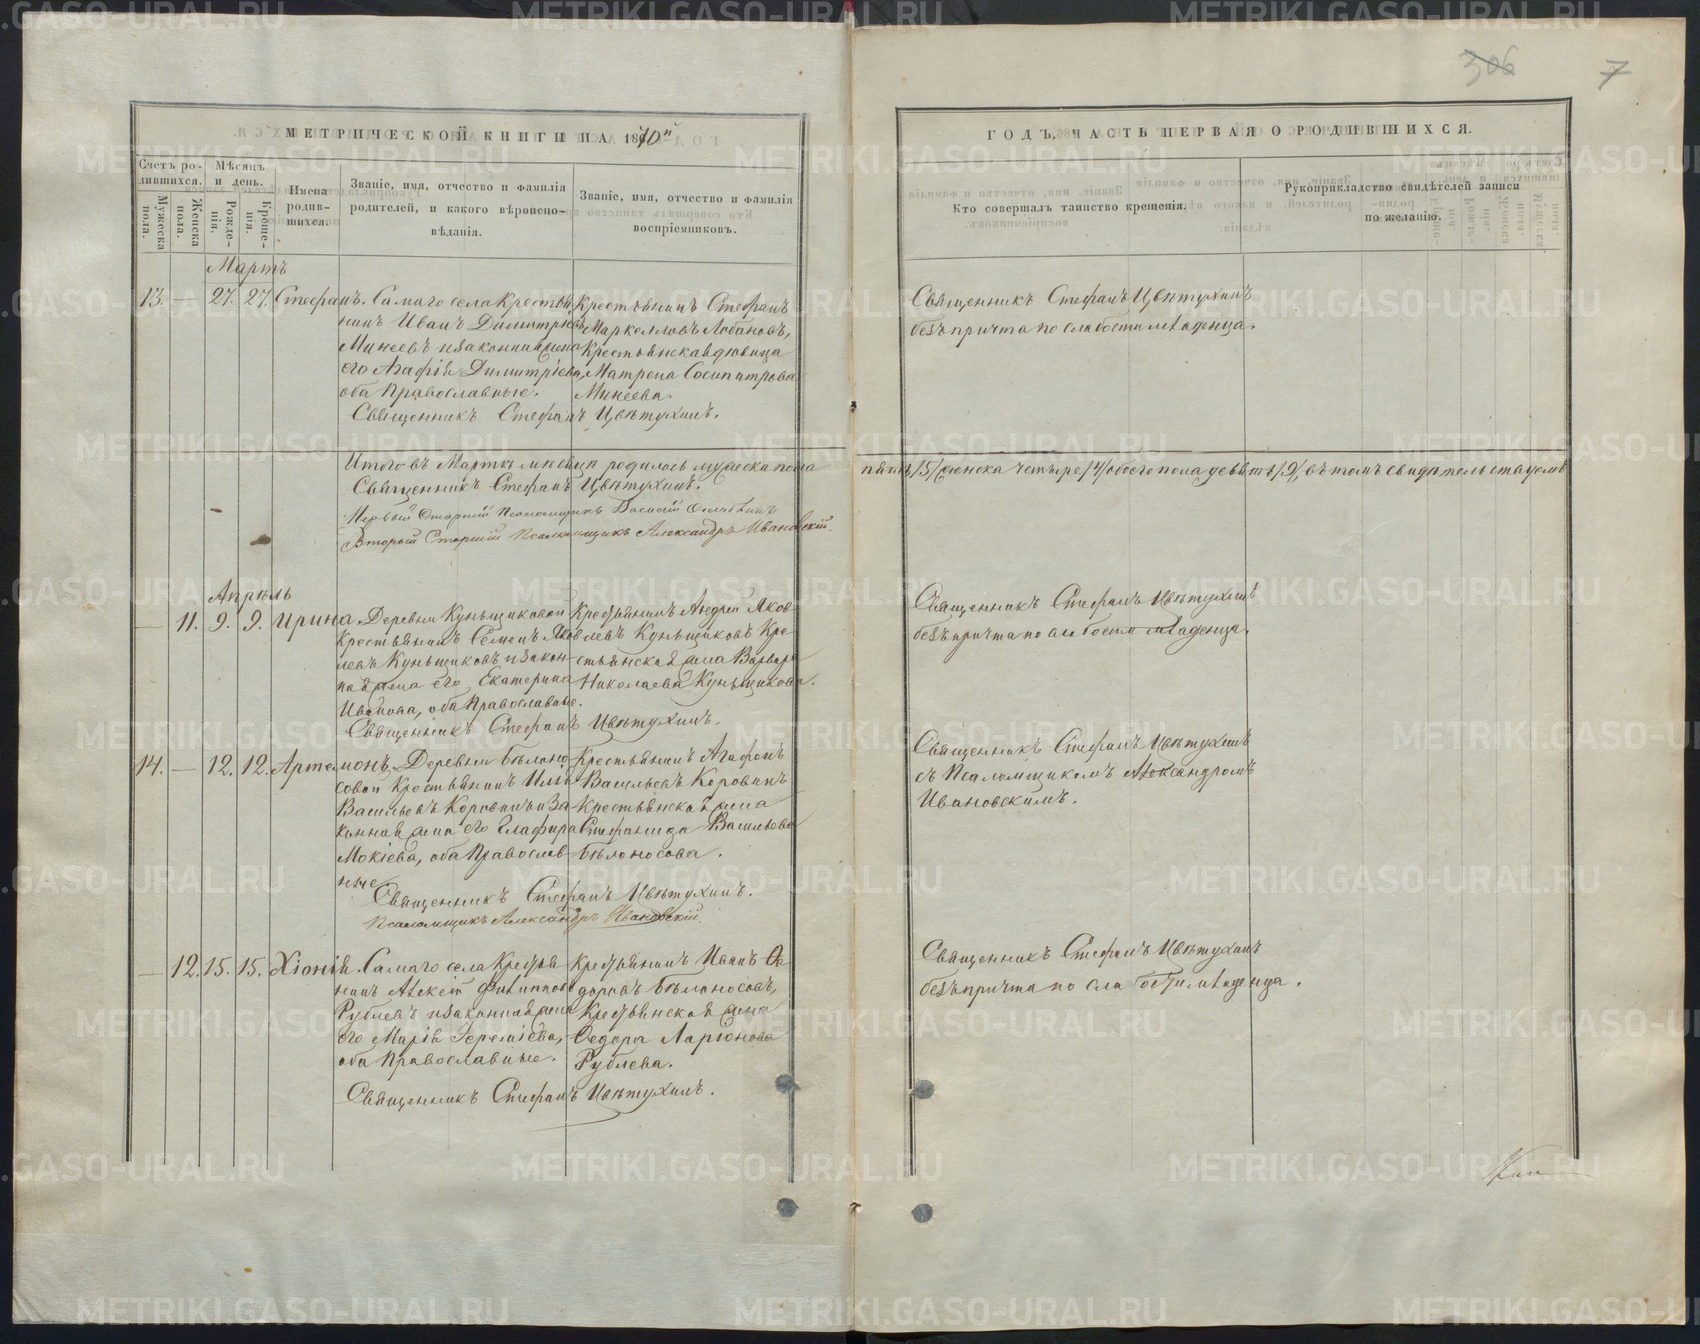 306 7
МЕТРИЧЕСКОЙ КНИГИ НА 1870й
Счетъ родившихся.
Мѣсяцъ и день.
Мужеска пола.
Женска пола.
Рожденія.
Крещенія.
Имена родившихся.
Званіе, имя, отчество и фамилія
родителей, и какого вѣроиспо-
вѣданія.
Званіе, имя, отчество и фамилія
воспріемниковъ.
Мартъ
13. — 27. 27. Стефанъ.
Самаго села Крестья-
нинъ Иванъ Димитріевъ
Минеевъ и законная жена
его Агафія Димитріева,
оба Православные.
Крестьянинъ Стефанъ
Маркелловъ Лобановъ,
Крестьянская вдовица
Матрена Сосипатрова
Минеева.
Священникъ Стефанъ Цвѣтухинъ.
Итого въ Мартѣ мѣсяцѣ родилось мужеска пола
Священникъ Стефанъ Цвѣтухинъ.
Первый Старшій Псаломщикъ Василій
Второй Старшій Псаломщикъ Александръ Ивановскій.
Апрѣль
— 11. 9. 9. Ирина
Деревни Куньщиковой
Крестьянинъ Семенъ Яков-
левъ Куньщиковъ и закон-
ная жена его Екатерина
Иванова, оба Православные.
Крестьянинъ Андрей Яков-
левъ Куньщиковъ Кре-
стьянская жена Варвара
Николаева Куньщикова.
Священникъ Стефанъ Цвѣтухинъ.
14. — 12. 12. Артемонъ.
Деревни Бѣлоно-
совой Крестьянинъ Илья
Васильевъ Коровинъ и за-
конная жена его Глафира
Мокіева, оба Православ-
ные
Крестьянинъ Агафонъ
Васильевъ Коровинъ
Крестьянская жена
Стефанида Васильева
Бѣлоносова.
Священникъ Стефанъ Цвѣтухинъ.
Псаломщикъ Александръ Ивановскій.
— 12. 15. 15. Хіонія.
Самаго села Крестья-
нинъ Алексій Филиппов
Рублевъ и законная жена
его Марія Іереміева,
оба Православные.
Крестьянинъ Иванъ Ѳе-
доровъ Бѣлоносовъ,
Крестьянская жена
Ѳедора Ларіонова
Рублева.
Священникъ Стефанъ Цвѣтухинъ.
ГОДЪ, ЧАСТЬ ПЕРВАЯ О РОДИВШИХСЯ.
Кто совершалъ таинство крещенія.
Рукоприкладство свидѣтелей записи
по желанію.
Священникъ Стефанъ Цвѣтухинъ
безъ причта по слабости младенца.
пять /5/ женска четыре /4/ обоего пола девять /9/, въ томъ свидѣтельствуемъ
Священникъ Стефанъ Цвѣтухинъ
безъ причта по слабости младенца.
Священникъ Стефанъ Цвѣтухинъ
съ Псаломщикомъ Александромъ
Ивановскимъ.
Священникъ Стефанъ Цвѣтухинъ
безъ причта по слабости младенца.
METRIKI.GASO-URAL.RU